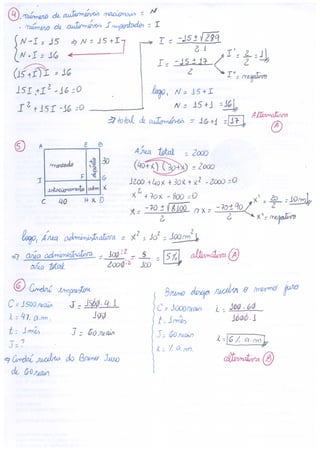 ④ número de automóveis nacionais = N
• número de automóveis importados = I
{ N - I = 15 ⇒ N = 15 + I
N • I = 16
(15 + I) I = 16
15I + I² - 16 = 0
I² + 15I - 16 = 0
I = -15 ± √289 / 2.1
I = -15 ± 17 / 2
I' = 2/2 = 1
I'' = negativo
logo, N = 15 + I
N = 15 + 1 = 16
⇒ total de automóveis = 16 + 1 = 17
Alternativa
(A)
⑤
A E B
mercado
depósito
30
F G
I
estacionamento adm X
C 40 H X D
Área total = 2000
(40 + x)(30 + x) = 2000
1200 + 40x + 30x + x² - 2000 = 0
x² + 70x - 800 = 0
x = -70 ± √8100 / 2 ⇒ x = -70 ± 90 / 2
x' = 20/2 = 10m
x'' = negativo
logo, Área administrativa = x² = 10² = 100m²
⇒ área administrativa / área total = 100 / 2000 = 5 / 100 = 5%
alternativa (A)
⑥ André emprestou
C = 1500 reais
i = 4% a.m.
t = 1 mês
J = ?
J = 1500.4.1 / 100
J = 60 reais
⇒ André recebeu de Bruno Juro
de 60 reais
Bruno deseja receber o mesmo juro
C = 1000 reais
t = 1 mês
J = 60 reais
i = % a.m.
i = 100.60 / 1000.1
i = 6% a.m.
alternativa (B)